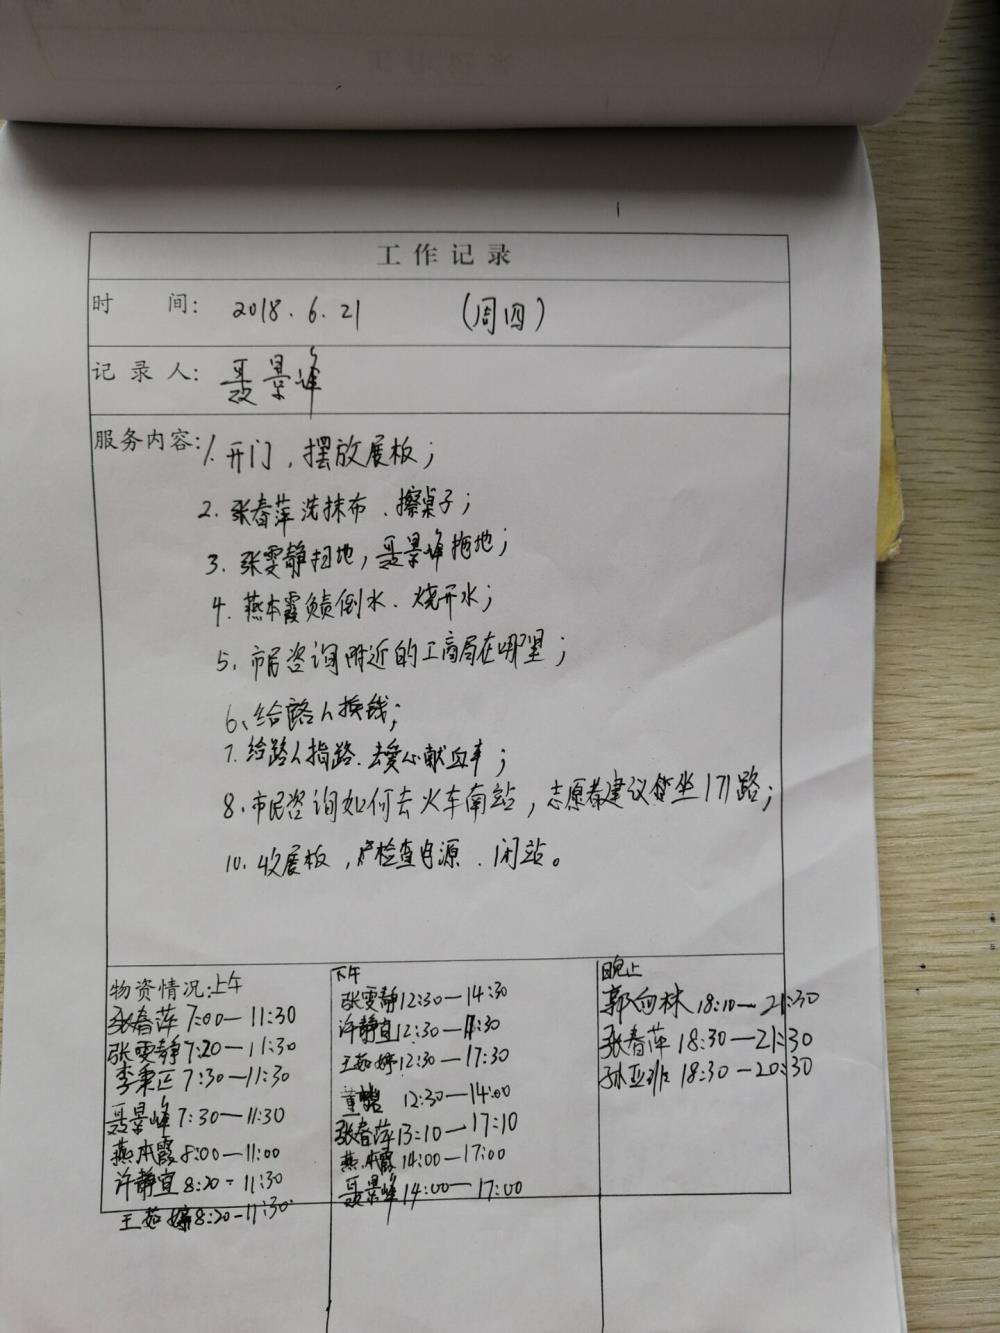 工作记录
时 间: 2018.6.21 (周四)
记录人: 聂景峰
服务内容: 1.开门,摆放展板;
2.张春萍洗抹布、擦桌子;
3.张雯静扫地,聂景峰拖地;
4.燕本霞负责倒水、烧开水;
5.市民咨询附近的工商局在哪里;
6、给路人换钱;
7.给路人指路、去爱心献血车;
8.市民咨询如何去火车南站,志愿者建议坐171路;
10.收展板,检查电源、闭站。
物资情况:上午
张春萍 7:00—11:30
张雯静 7:20—11:30
李秉正 7:30—11:30
聂景峰 7:30—11:30
燕本霞 8:00—11:00
许静宜 8:20-11:30
王茹婷 8:20-11:30
下午
张雯静 12:30—14:30
许静宜 12:30—:30
王茹婷 12:30—17:30
董 12:30—14:00
张春萍 13:10—17:10
燕本霞 14:00—17:00
聂景峰 14:00—17:00
晚上
郭向林 18:10—21:30
张春萍 18:30—21:30
孙亚 18:30—20:30